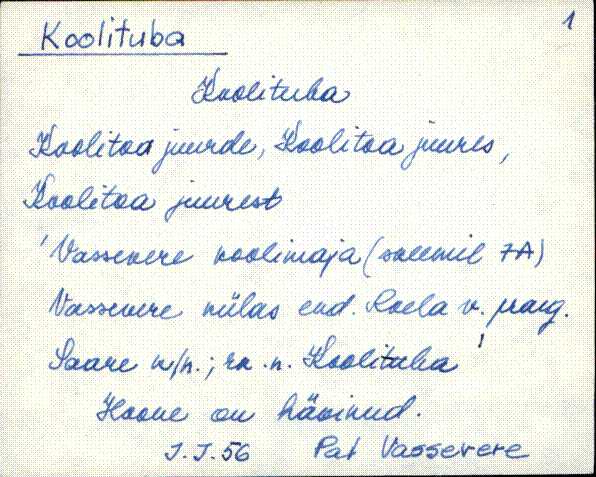 1
Koolituba
Koolituba
Koolitoa juurde, Koolitoa juures,
Koolitoa juurest
'Vassevere koolimaja (skeemil 7A)
Vassevere külas end. Roela v. praeg.
Saare k/n.; rn. n. Koolituba'
Hoone on hävinud.
J.J.56 Pat Vassevere